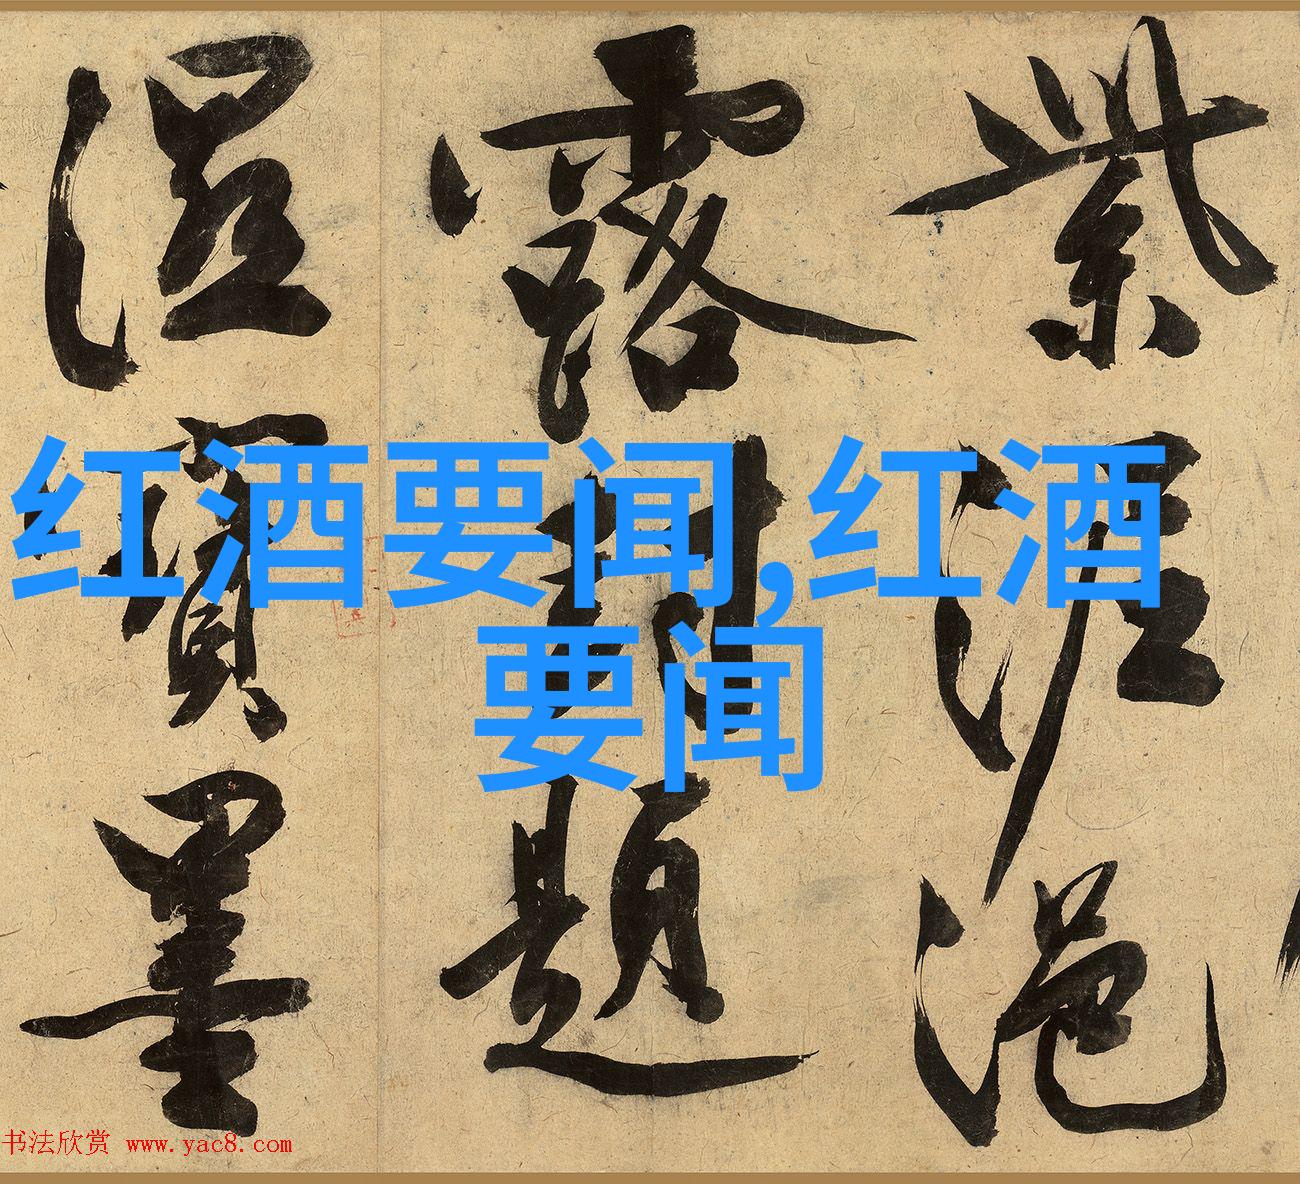 紫泥浥
露封題
濕寶墨
红酒要闻,红酒
要闻
书法欣赏 www.yac8.com